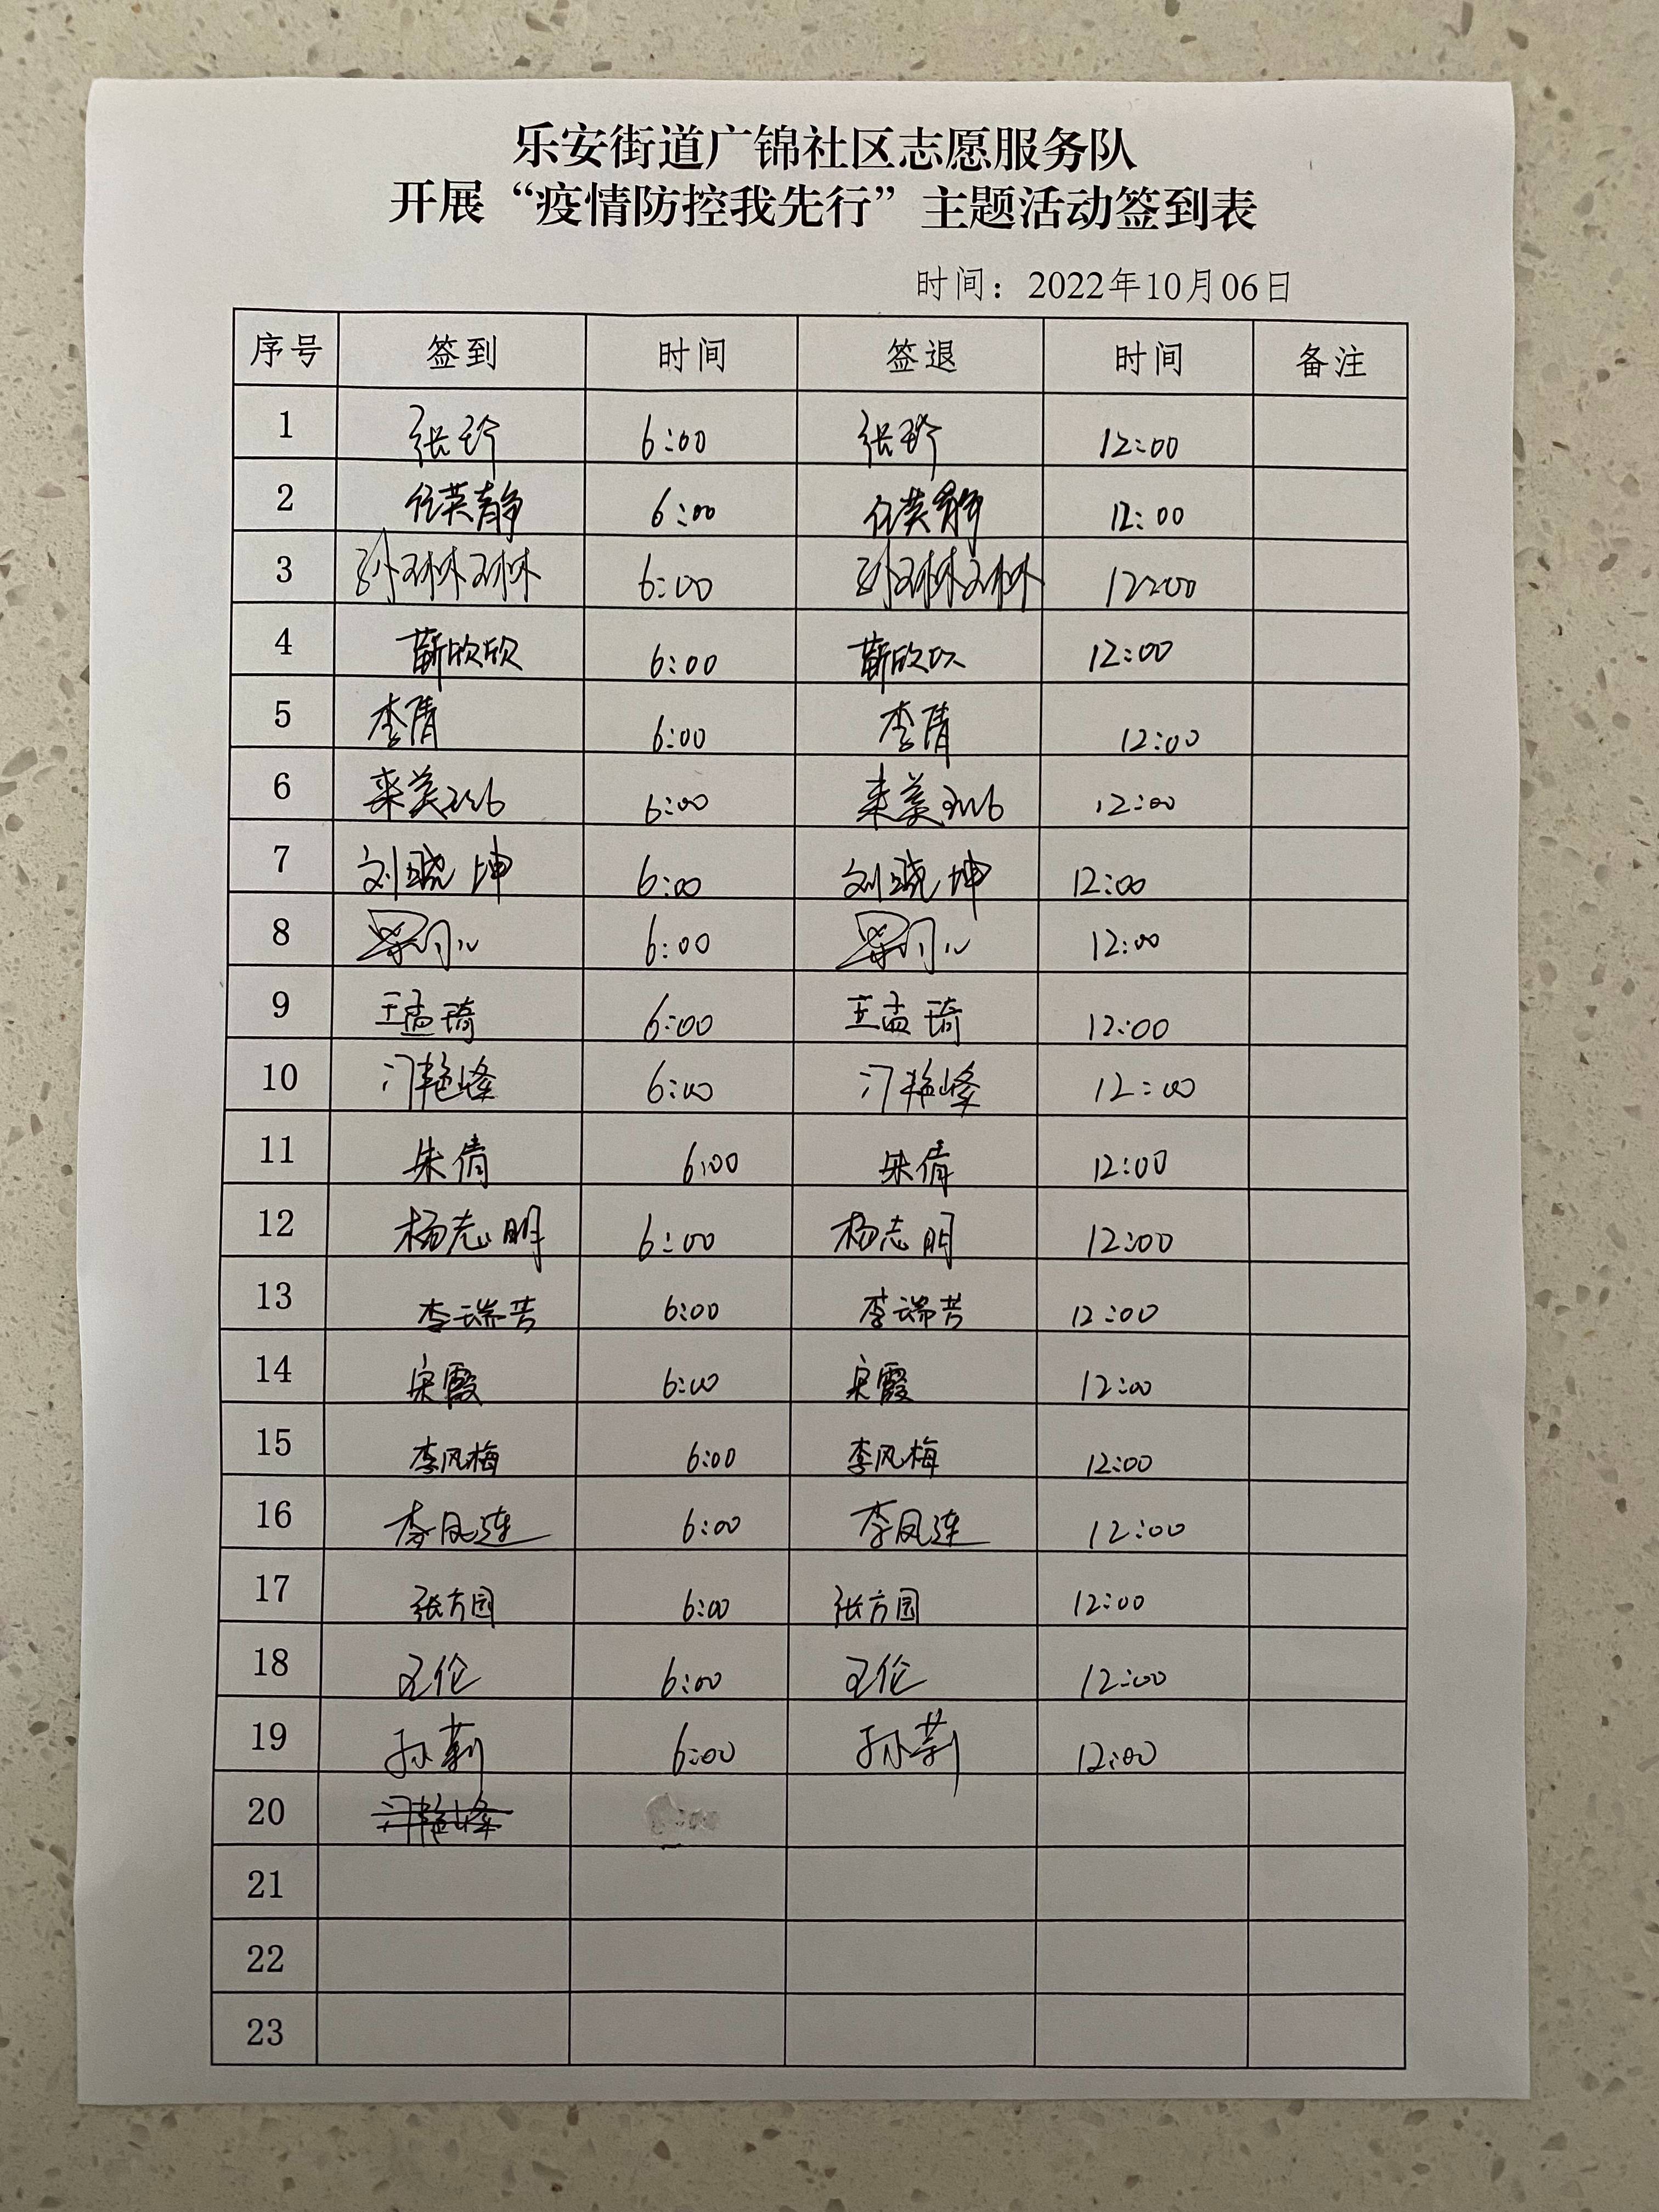 乐安街道广锦社区志愿服务队
开展“疫情防控我先行”主题活动签到表
时间：2022年10月06日
序号 签到 时间 签退 时间 备注
1 张玲 6:00 张玲 12:00
2 任英静 6:00 任英静 12:00
3 孙琳琳 6:00 孙琳琳 12:00
4 靳欣欣 6:00 靳欣欣 12:00
5 李倩 6:00 李倩 12:00
6 来美 6:00 来美 12:00
7 刘晓坤 6:00 刘晓坤 12:00
8 6:00 12:00
9 王孟琦 6:00 王孟琦 12:00
10 门艳峰 6:00 门艳峰 12:00
11 朱倩 6:00 朱倩 12:00
12 杨志明 6:00 杨志明 12:00
13 李瑞芳 6:00 李瑞芳 12:00
14 宋霞 6:00 宋霞 12:00
15 李风梅 6:00 李风梅 12:00
16 李凤连 6:00 李凤连 12:00
17 张方园 6:00 张方园 12:00
18 王伦 6:00 王伦 12:00
19 孙莉 6:00 孙莉 12:00
20 门艳峰
21
22
23